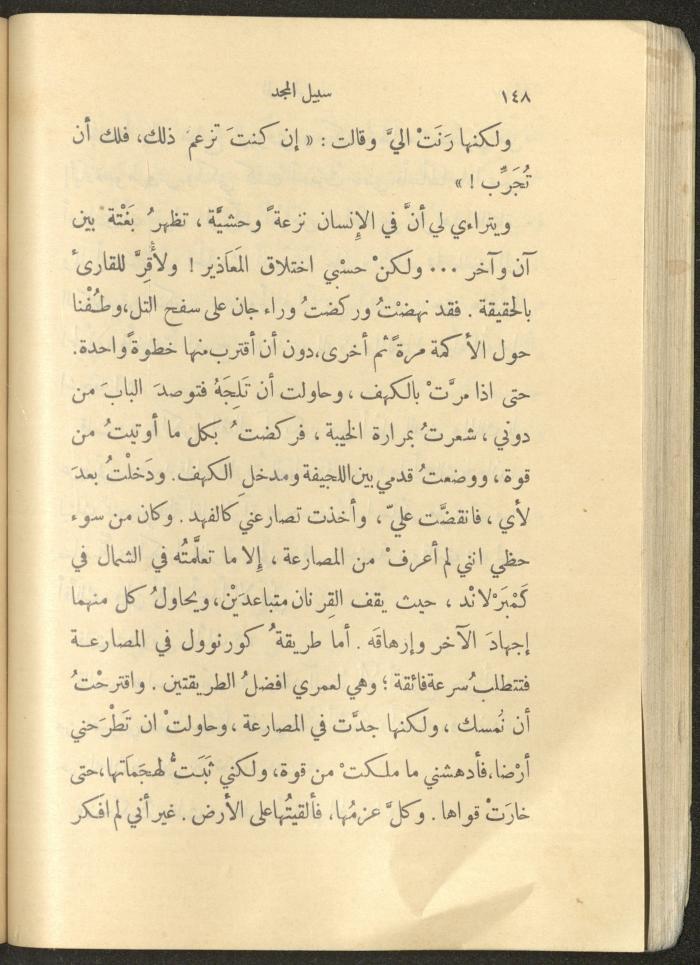 ١٤٨
سبيل المجد
ولكنها رَنَتْ اليَّ وقالت : « إن كنتَ تزعمُ ذلك، فلك أن
تُجَرِّب ! »
ويتراءي لي أنَّ في الإِنسان نزعةً وحشيَّة ، تظهرُ بَغْتة بين
آن وآخر ... ولكنْ حسْبي اختلاق المَعَاذير ! ولأُقِرَّ للقارىءُ
بالحقيقة . فقد نهضْتُ وركضتُ وراء جان على سفح التل،وطُفْنا
حول الأكمة مرةً ثم أخرى،دون أن أقترب منها خطوةً واحدة.
حتى اذا مرَّتْ بالكهف ، وحاولت أن تَلِجَهُ فتوصدَ البابَ من
دوني ، شعرتُ بمرارة الخيبة ، فركضتُ بكل ما أوتيتُ من
قوة ، ووضعتُ قدمي بين اللجيفة ومدخل الكهف. ودَخلْتُ بعدَ
لأي ، فانقضَّت عليّ ، وأخذت تصارعني كالفهد . وكان من سوء
حظي انني لم أعرفْ من المصارعة ، إلا ما تعلَّمتُه في الشمال في
كَمْبَرْلاند ، حيث يقف القِرنان متباعدَيْن،ويحاولُ كل منهما
إجهادَ الآخر وإرهاقَه . أما طريقةُ كورنوول في المصارعة
فتتطلبُ سرعة فائقة ؛ وهي لعمري افضلُ الطريقتين . واقترحْتُ
أن نُمسك ، ولكنها جدَّت في المصارعة ، وحاولتْ ان تَطْرَحني
أرْضا،فأدهشني ما ملكتْ من قوة، ولكني ثَبَتُّ لهجَمَاتها،حتى
خارَتْ قواها . وكلَّ عزمُها، فألقيتُها على الأرض . غير أني لم افكر